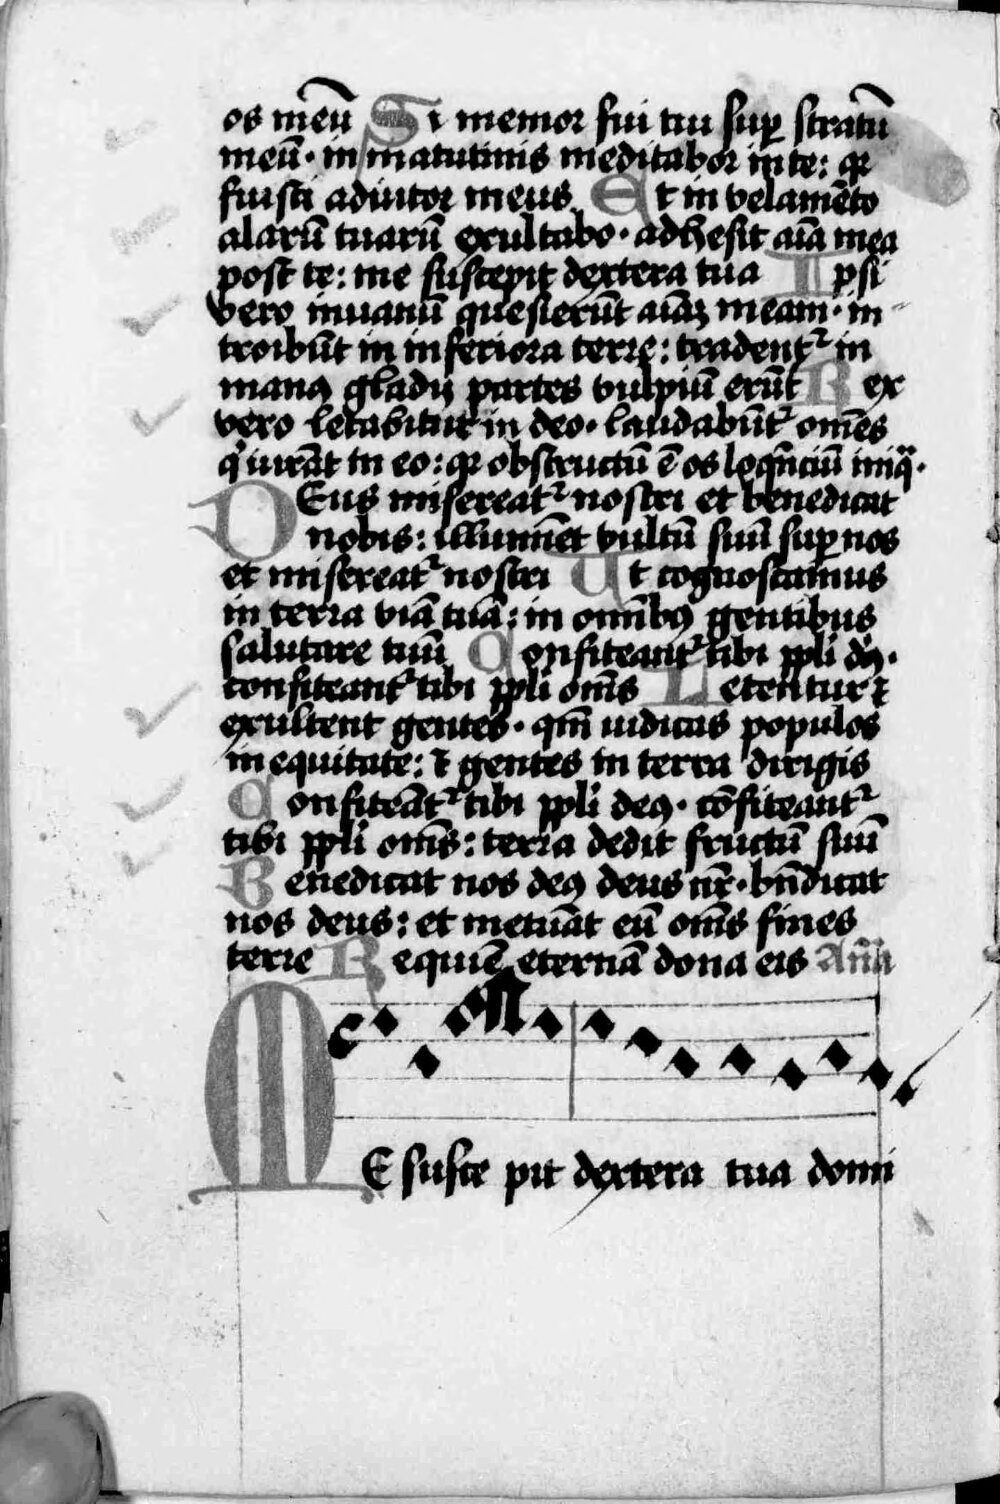 os meū Si memor fui tui suꝑ stratū
meū· in matutinis meditabor in te: qꝛ
fuisti adiutor meus Et in velamēto
alarū tuarū exultabo· adhesit aīa mea
post te: me suscepit dextera tua Ipsi
vero in uanū quesierūt aīaꝫ meam· in
troibūt in inferiora terre: tradentᷣ in
manꝰ gladij partes vulpiū erūt Rex
vero letabitur in deo· laudabūtᷣ omēs
qͥ iurāt in eo: qꝛ obstructū ē os loqn̄ciū iniqͣ·
DEus misereatᷣ nostri et benedicat
nobis: illuminet vultū suū suꝑ nos
et misereatᷣ nostri Ut cognoscamus
in terra viā tuā: in omībꝰ gentibus
salutare tuū Confiteantᷣ tibi ppl̄i dꝰ·
confiteantᷣ tibi ppl̄i om̄s Letentur ⁊
exultent gentes· qm̄ iudicas populos
in equitate: ⁊ gentes in terra dirigis
Confiteātᷣ tibi ppl̄i deꝰ· cōfiteantᷣ
tibi ppl̄i om̄s: terra dedit fructū suū
Benedicat nos deꝰ deus nr̄· bn̄dicat
nos deus: et metuāt eū om̄s fines
terre Requiē eternā dona eis An̄a
ME susce pit dextera tua domi